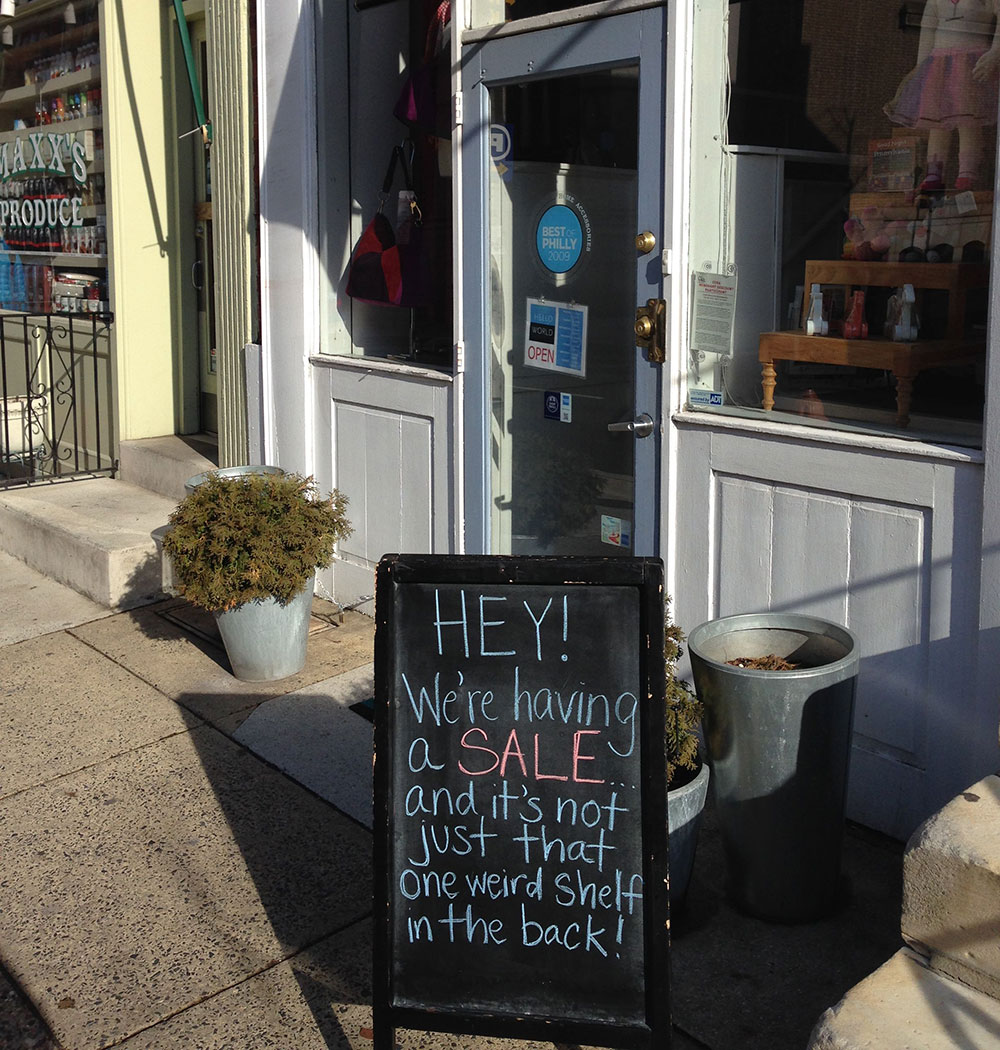 MAXX'S
PRODUCE
BEST OF
PHILLY
2009
ACCESSORIES
HELLO
WORLD
OPEN
ADT
HEY!
We're having
a SALE...
and it's not
just that
one weird shelf
in the back!